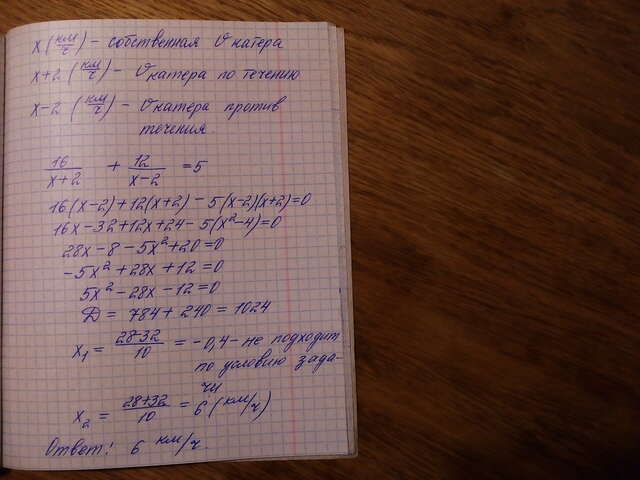 x (км/ч) – собственная V катера
x+2 (км/ч) – V катера по течению
x–2 (км/ч) – V катера против
течения.
16/(x+2) + 12/(x–2) = 5
16(x–2)+12(x+2) – 5(x–2)(x+2)=0
16x–32+12x+24–5(x²–4)=0
28x–8–5x²+20=0
–5x²+28x+12=0
5x²–28x–12=0
D = 784+240 = 1024
x₁ = (28–32)/10 = –0,4 – не подходит
по условию зада-
чи
x₂ = (28+32)/10 = 6 (км/ч)
Ответ: 6 км/ч.